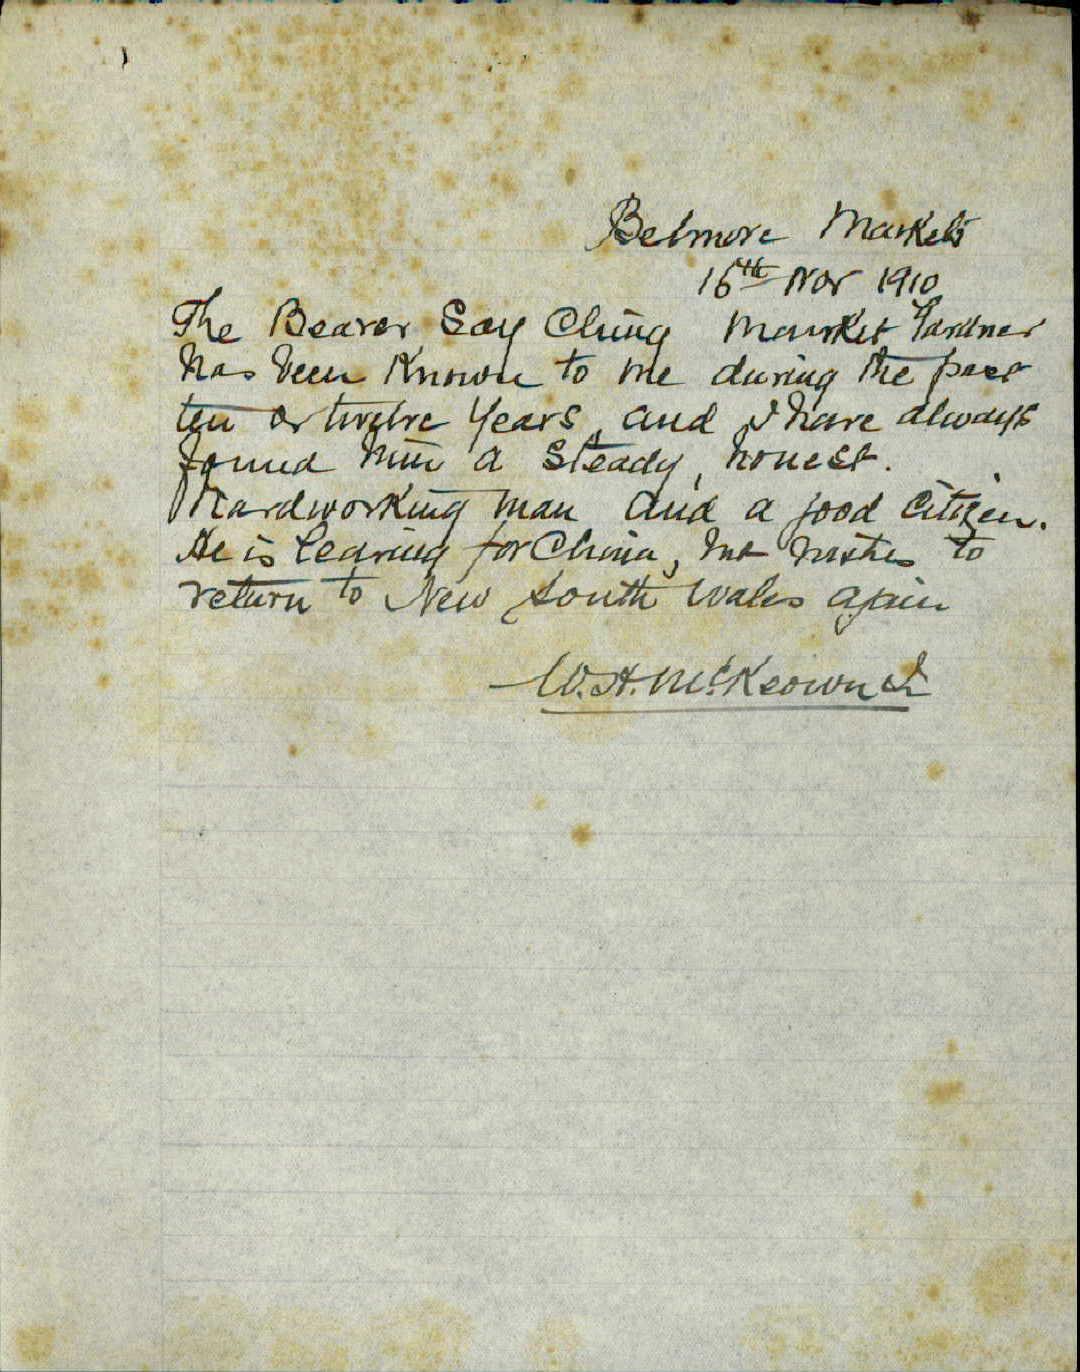 Belmore Markets
16th Nov 1910
The Bearer Say Ching Market Gardner
has been Known to me during the past
ten or twelve Years, and I have always
found him a Steady, honest.
Hardworking man and a good Citizen.
He is leaving for China, but wishes to
return to New South Wales again
W. H. McKeown